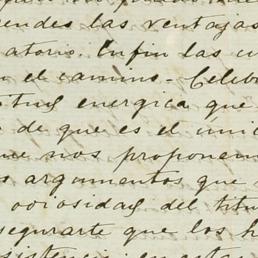 rendes las ventajas
atorio. Enfin las cu
n el camino. Celeb
titud energica que
de que es el únic
ue nos proponem
s argumentos que
ociosidad del titu
segurarte que los h
sistencia: en estas